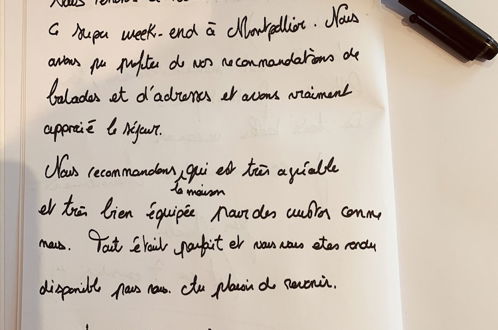 Nous
c super week-end à Montpellier. Nous
avons pu profiter de vos recommandations de
balades et d'adresses et avons vraiment
apprécié le séjour.
Nous recommandons, qui est très agréable
la maison
et très bien équipée pour des
comme
nous. Tout était parfait et vous vous etes rendu
disponible pour nous. Au plaisir de revenir.